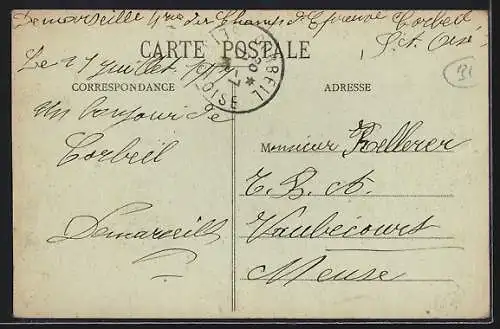 Demarseille rue des Champs d'Epreuve Corbeil
S. et Oise
CARTE POSTALE
CORBEIL
OISE
CORRESPONDANCE
ADRESSE
Le 27 Juillet
un bonjour de
Corbeil
Demarseille
Monsieur Kellerer
Vaubécourt
Meuse